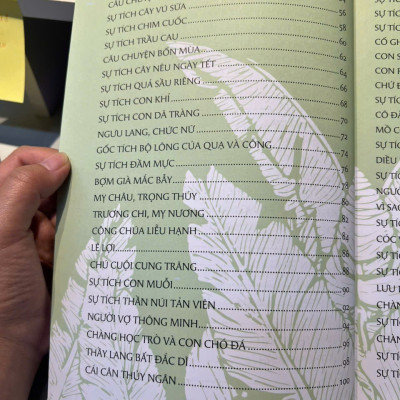 SỰ TÍCH CÂY VÚ SỮA 56
SỰ TÍCH CHIM CUỐC 58
SỰ TÍCH TRẦU CAU 60
CÂU CHUYỆN BỐN MÙA 62
SỰ TÍCH CÂY NÊU NGÀY TẾT 64
SỰ TÍCH QUẢ SẦU RIÊNG 66
SỰ TÍCH CON KHỈ 68
SỰ TÍCH CON DÃ TRÀNG 70
NGƯU LANG, CHỨC NỮ 72
GỐC TÍCH BỘ LÔNG CỦA QUẠ VÀ CÔNG 74
SỰ TÍCH ĐẦM MỰC 76
BỢM GIÀ MẮC BẪY 78
MỴ CHÂU, TRỌNG THỦY 80
TRƯƠNG CHI, MỴ NƯƠNG 82
CÔNG CHÚA LIỄU HẠNH 84
LÊ LỢI 86
CHÚ CUỘI CUNG TRĂNG 88
SỰ TÍCH CON MUỖI 90
SỰ TÍCH THẦN NÚI TẢN VIÊN 92
NGƯỜI VỢ THÔNG MINH 94
CHÀNG HỌC TRÒ VÀ CON CHÓ ĐÁ 96
THẦY LANG BẤT ĐẮC DĨ 98
CÁI CÂN THỦY NGÂN 100
SỰ TÍCH
SỰ TÍ
CON
CHÚ
CÔ
DIỀU
SỰ T
VÌ SAO
SỰ T
CÓC
SỰ T
CHÀN
SỰ T
CHÀN
SỰ TÍ
SỰ T